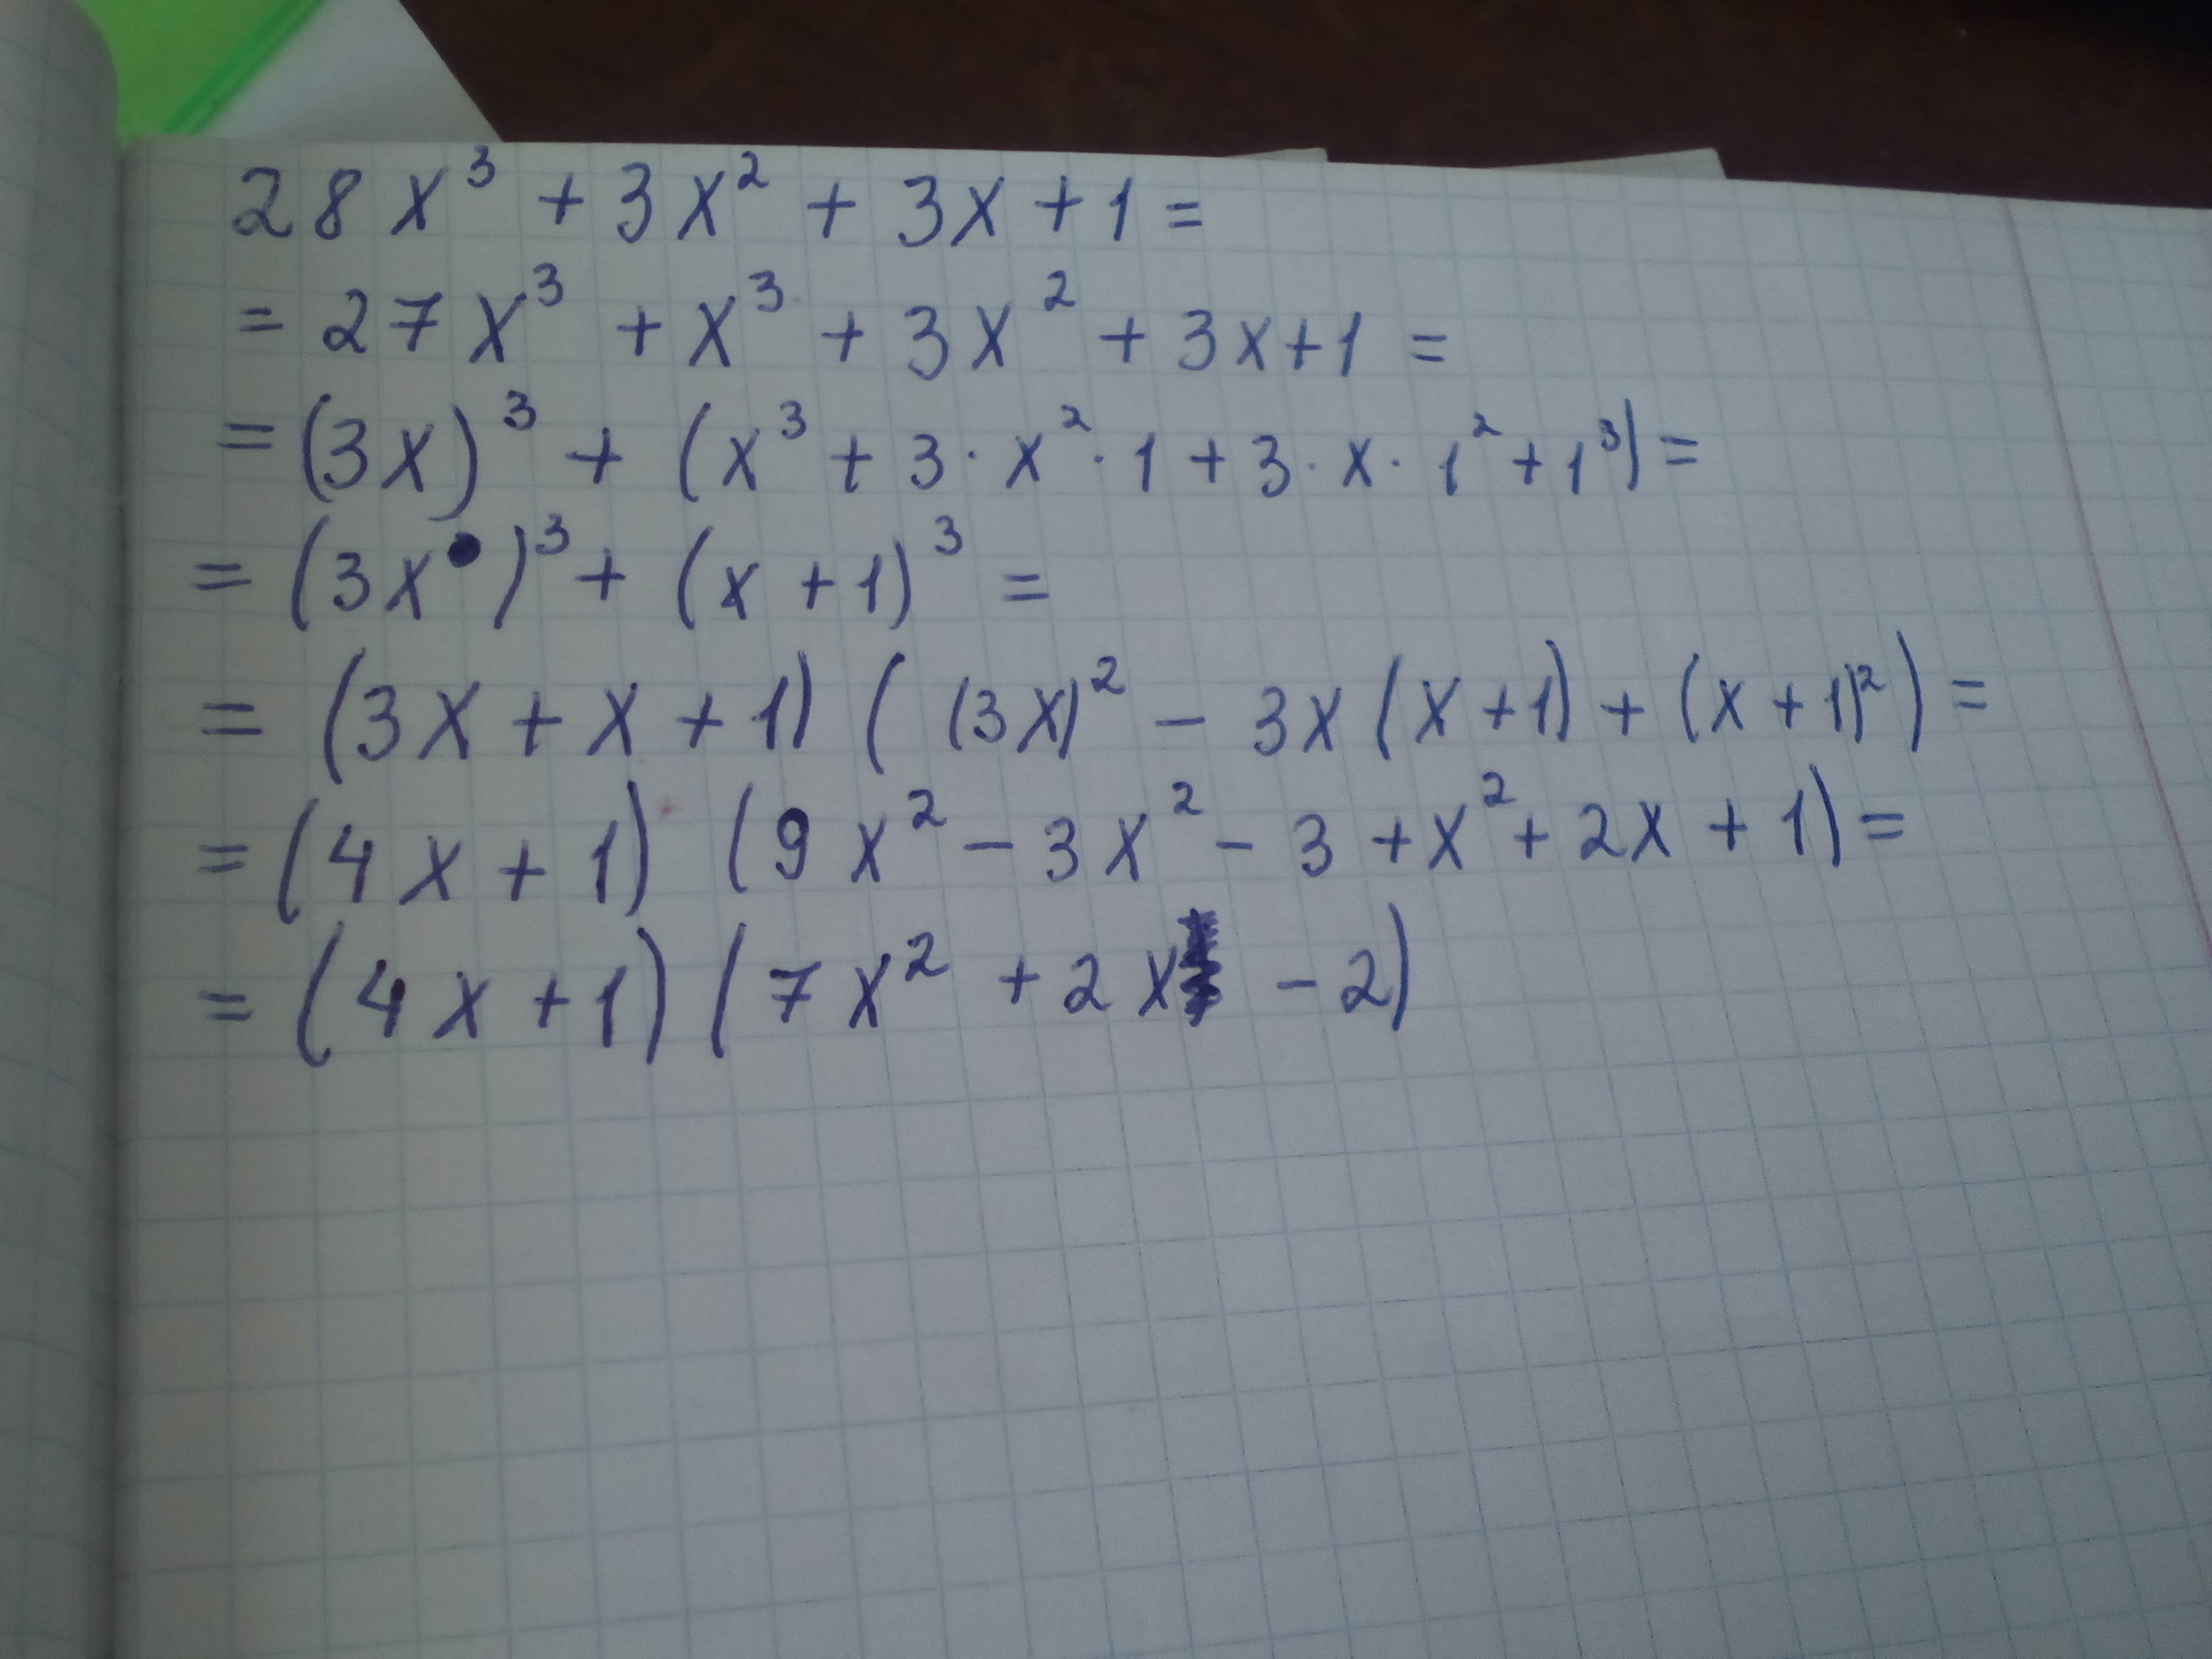 28x³ + 3x² + 3x + 1 =
= 27x³ + x³ + 3x² + 3x + 1 =
= (3x)³ + (x³ + 3 · x² · 1 + 3 · x · 1² + 1³) =
= (3x)³ + (x + 1)³ =
= (3x + x + 1) ((3x)² - 3x(x + 1) + (x + 1)²) =
= (4x + 1) (9x² - 3x² - 3 + x² + 2x + 1) =
= (4x + 1) (7x² + 2x - 2)